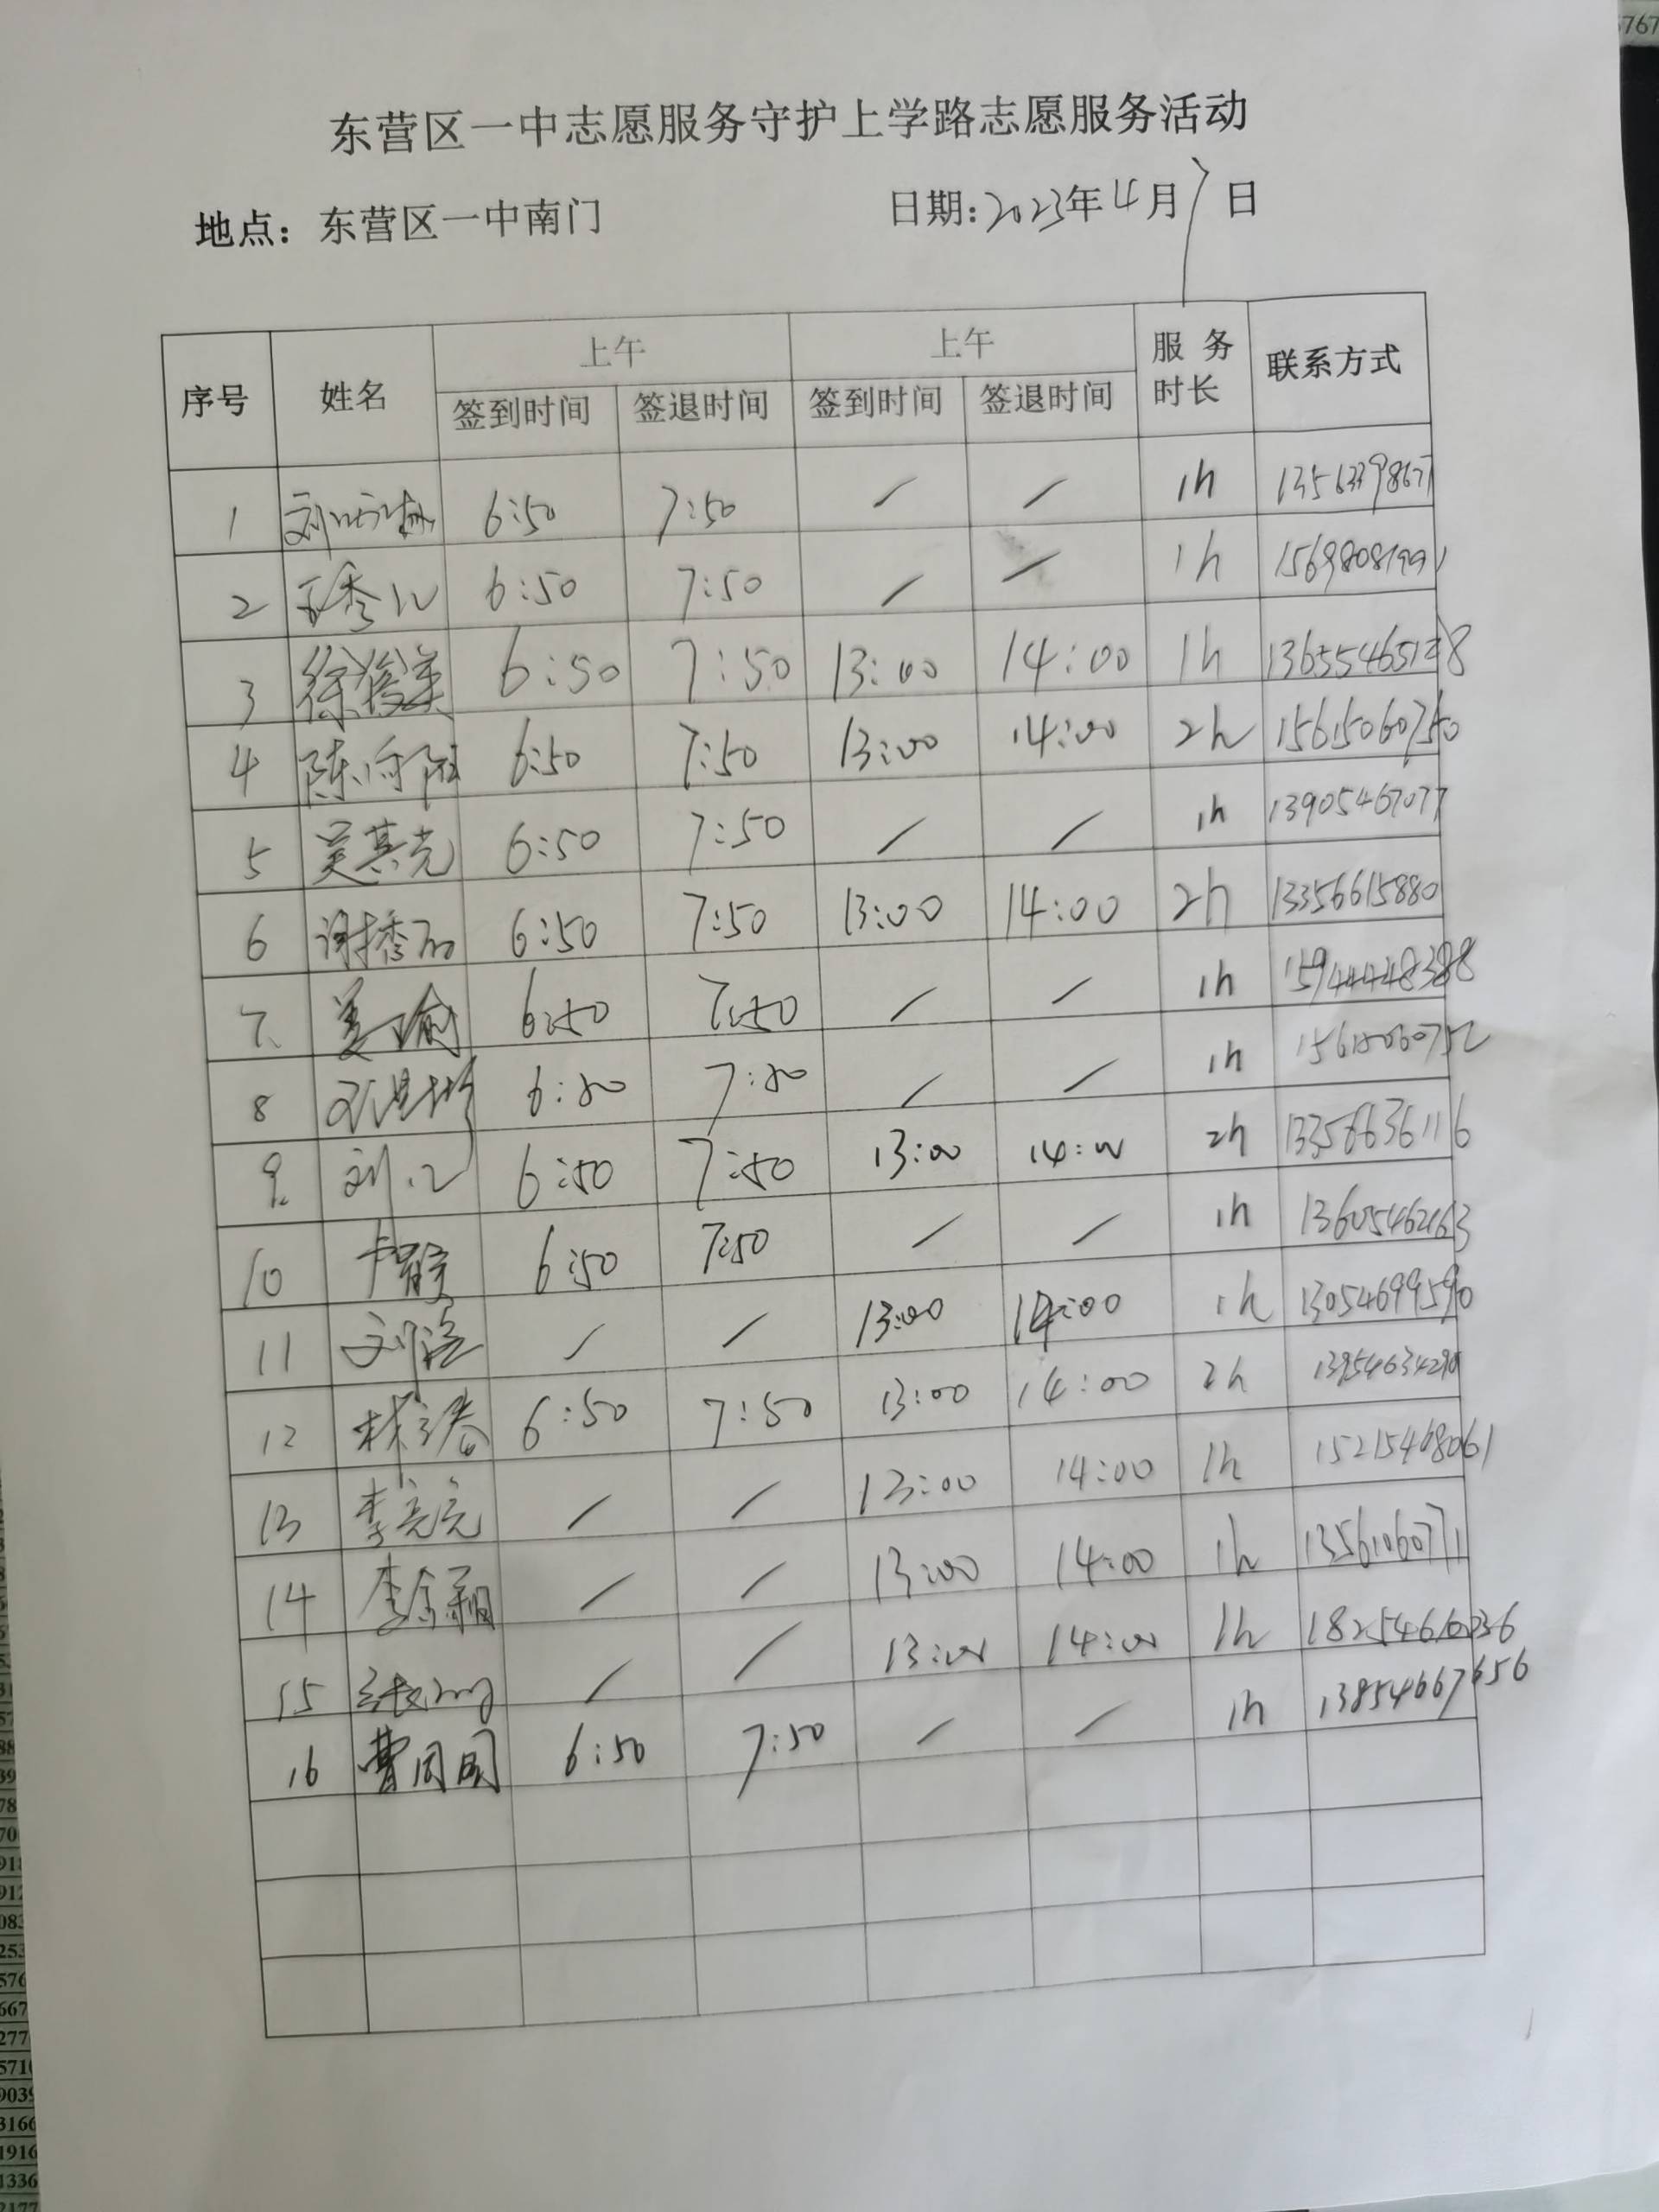 东营区一中志愿服务守护上学路志愿服务活动
地点：东营区一中南门 日期:2023年4月7日
序号 姓名 上午 上午 服务时长 联系方式
签到时间 签退时间 签到时间 签退时间
1 6:50 7:50 / / 1h
2 6:50 7:50 / / 1h
3 徐俊美 6:50 7:50 13:00 14:00 1h
4 陈向阳 6:50 7:50 13:00 14:00 2h 15615060750
5 吴其光 6:50 7:50 / / 1h 13905467077
6 谢秀丽 6:50 7:50 13:00 14:00 2h 13356615880
7、 姜瑜 6:50 7:50 / / 1h 15944448388
8 6:50 7:50 / / 1h 15615060752
9. 6:50 7:50 13:00 14:00 2h 13356636116
10 6:50 7:50 / / 1h 13605462163
11 / / 13:00 14:00 1h 13054699590
12 6:50 7:50 13:00 14:00 2h
13 李亮亮 / / 13:00 14:00 1h 15215468061
14 / / 13:00 14:00 1h 13561060771
15 / / 13:00 14:00 1h
16 曹同同 6:50 7:50 / / 1h 13854667656